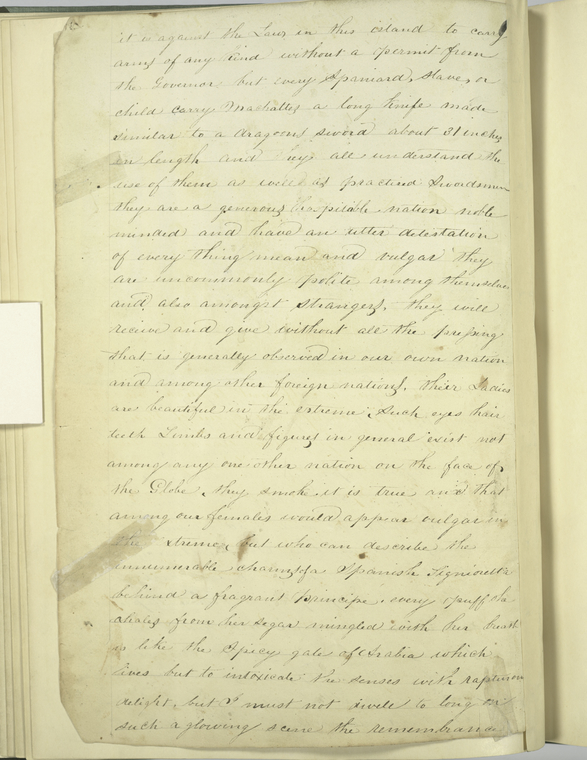 it is against the Laws in this island to carry
arms of any kind without a permit from
the Governor, but every Spaniard, slave, or
child carry Machattes a long knife made
similar to a dragoons sword about 31 inches
in length and they all understand the
use of them as well as practised Swordsmen
they are a generous hospitable nation noble
minded and have an utter detestation
of every thing mean and vulgar they
are uncommonly polite among themselves
and also amongst strangers, they will
receive and give without all the pressing
that is generally observed in our own nation
and among other foreign nations, their Ladies
are beautiful in the extreme, Such eyes hair
teeth Limbs and figures in general exist not
among any one other nation on the face of
the Globe, they smoke it is true and that
among our females would appear vulgar in
the extreme, but who can describe the
innumerable charms of a Spanish
behind a fragrant Principe, every puff she
from her segar mingled with her breath
is like the Spicy gale of Arabia which
but to intoxicate the senses with
delight, but I must not dwell to long on
such a glowing scene the remembrance